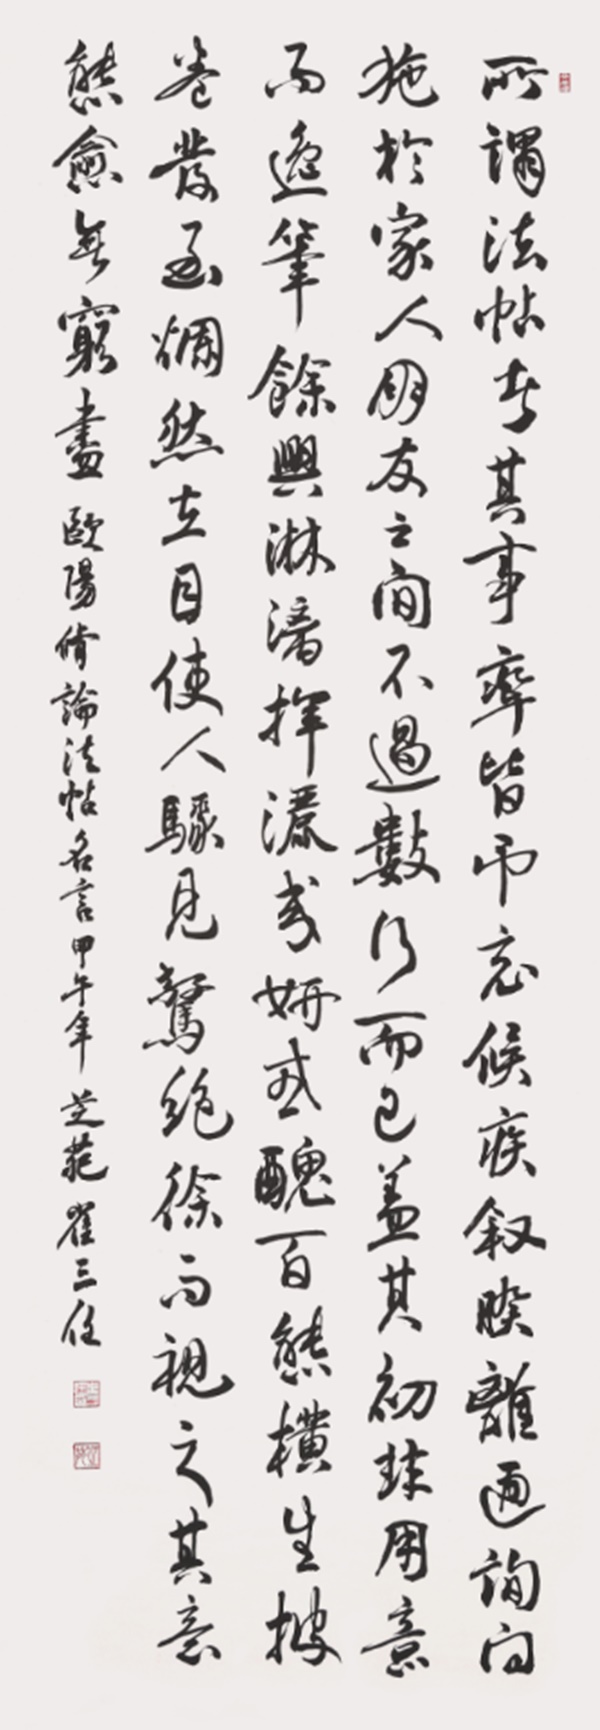 所謂法帖者其事率皆弔哀候疾叙睽離通詢問
施於家人朋友之間不過數行而已蓋其初非用意
而逸筆餘興淋漓揮灑或妍或醜百態橫生披
卷發函爛然在目使人驟見驚絕徐而視之其意
態愈無窮盡 歐陽脩論法帖名言甲午年 芝苑 崔三任